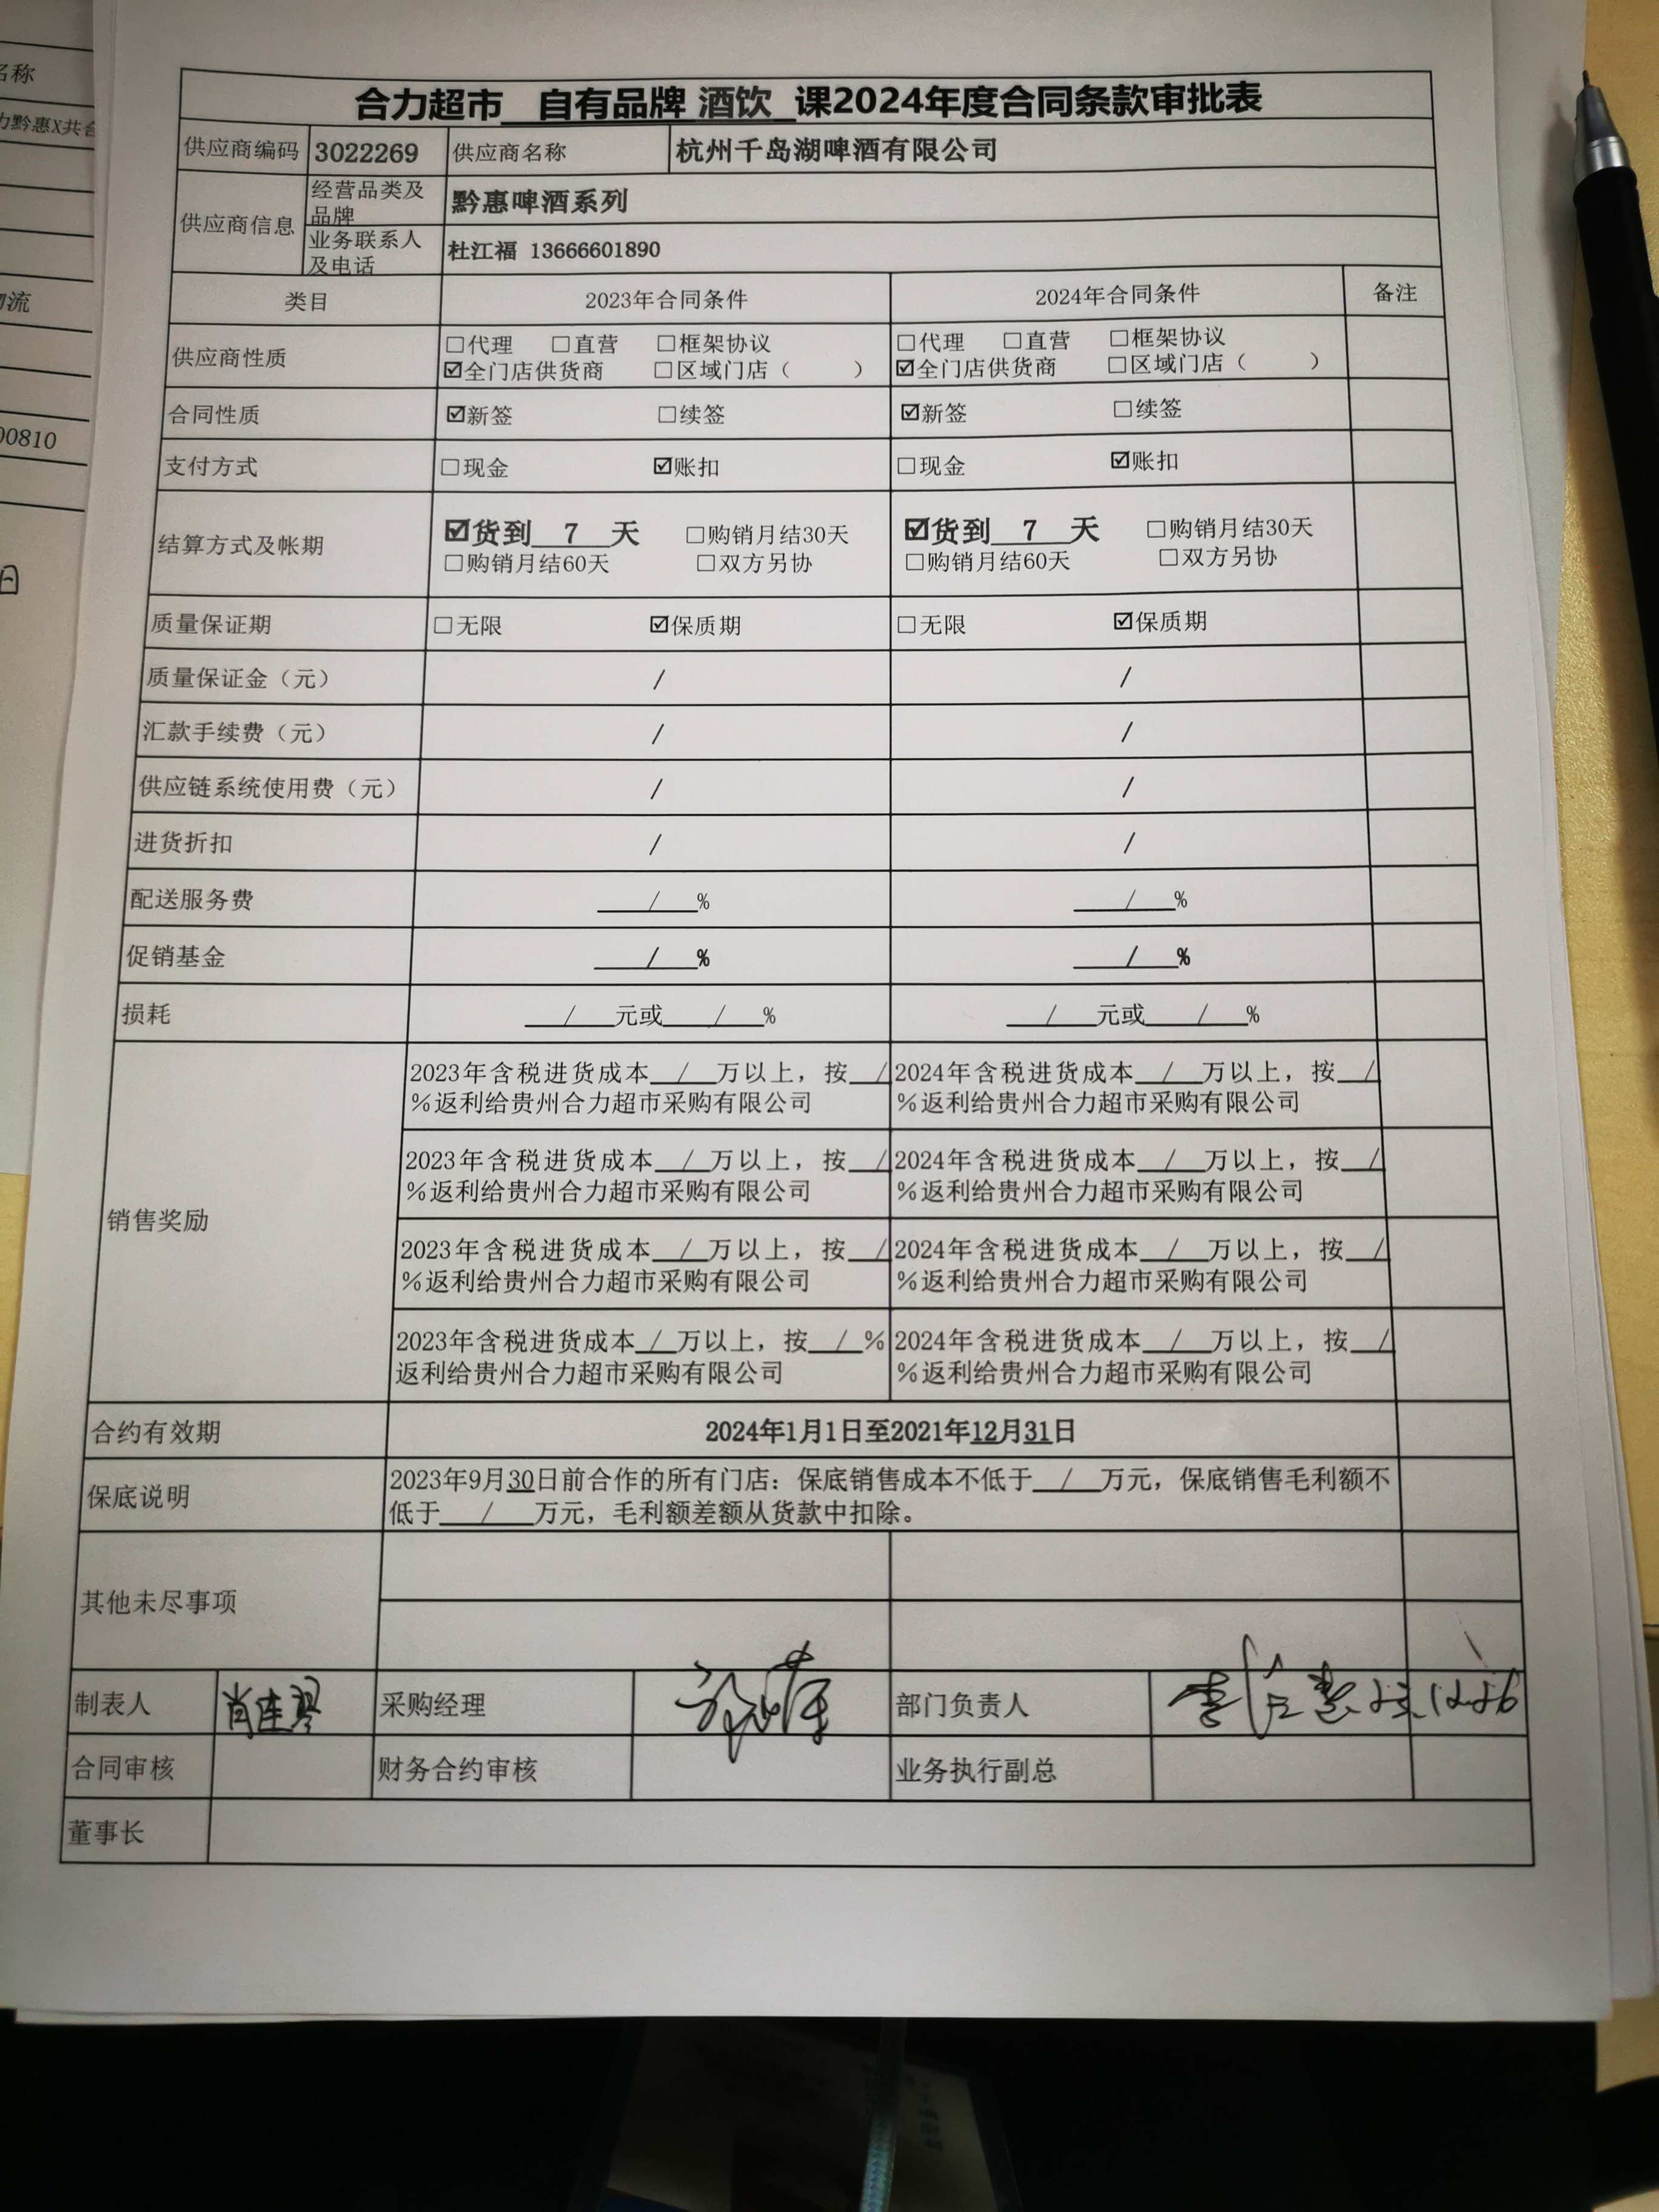 合力超市 自有品牌 酒饮 课2024年度合同条款审批表
供应商编码 3022269 供应商名称 杭州千岛湖啤酒有限公司
供应商信息 经营品类及品牌 黔惠啤酒系列
业务联系人及电话 杜江福 13666601890
类目 2023年合同条件 2024年合同条件 备注
供应商性质 □代理 □直营 □框架协议 □代理 □直营 □框架协议
☑全门店供货商 □区域门店（ ） ☑全门店供货商 □区域门店（ ）
合同性质 ☑新签 □续签 ☑新签 □续签
支付方式 □现金 ☑账扣 □现金 ☑账扣
结算方式及帐期 ☑货到 7 天 □购销月结30天 ☑货到 7 天 □购销月结30天
□购销月结60天 □双方另协 □购销月结60天 □双方另协
质量保证期 □无限 ☑保质期 □无限 ☑保质期
质量保证金（元） / /
汇款手续费（元） / /
供应链系统使用费（元） / /
进货折扣 / /
配送服务费 / % / %
促销基金 / % / %
损耗 / 元或 / % / 元或 / %
销售奖励
2023年含税进货成本 / 万以上，按 / 2024年含税进货成本 / 万以上，按 /
%返利给贵州合力超市采购有限公司 %返利给贵州合力超市采购有限公司
2023年含税进货成本 / 万以上，按 / 2024年含税进货成本 / 万以上，按 /
%返利给贵州合力超市采购有限公司 %返利给贵州合力超市采购有限公司
2023年含税进货成本 / 万以上，按 / 2024年含税进货成本 / 万以上，按 /
%返利给贵州合力超市采购有限公司 %返利给贵州合力超市采购有限公司
2023年含税进货成本 / 万以上，按 / % 2024年含税进货成本 / 万以上，按 /
返利给贵州合力超市采购有限公司 %返利给贵州合力超市采购有限公司
合约有效期 2024年1月1日至2021年12月31日
保底说明 2023年9月30日前合作的所有门店：保底销售成本不低于 / 万元，保底销售毛利额不
低于 / 万元，毛利额差额从货款中扣除。
其他未尽事项
制表人 肖连琴 采购经理 部门负责人
合同审核 财务合约审核 业务执行副总
董事长
名称
力黔惠X共合
物流
00810
日